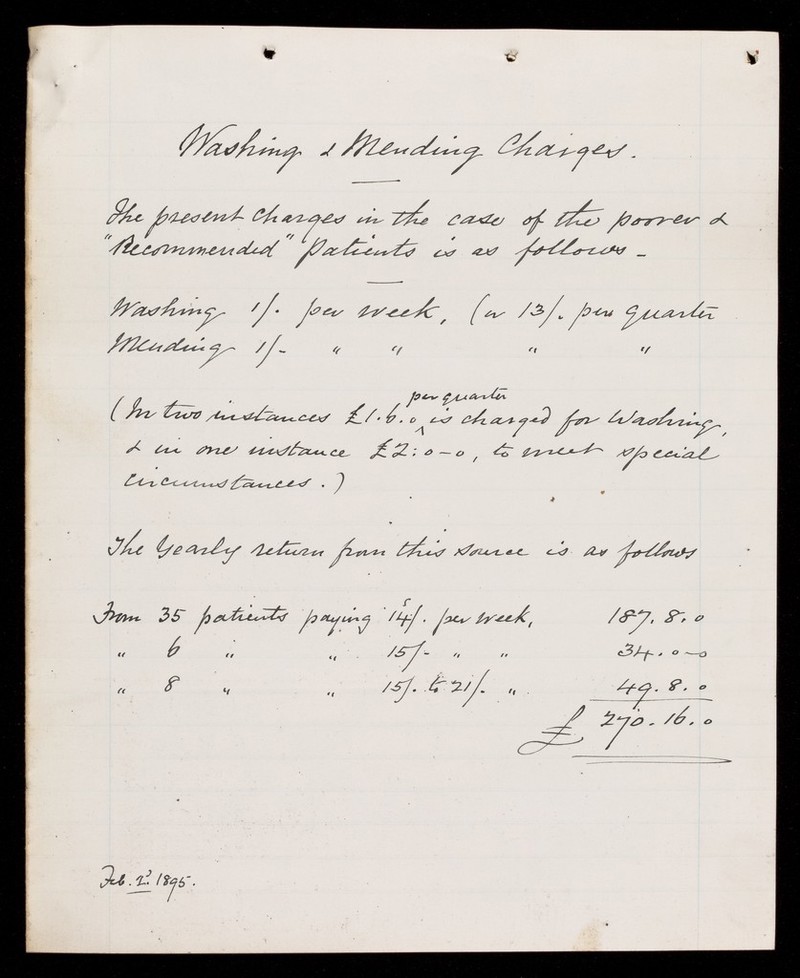 Washing & Mending Charges.
The present charges in the case of the poorer &
"Recommended" patients is as follows -
Washing 1/- per week, (or 13/- per quarter
Mending 1/- " " " "
per quarter
(In two instances £1.6.0 is charged for Washing,
& in one instance £2:0-0, to meet special
circumstances.)
The Yearly return from this source is as follows
From 35 patients paying 14/- per week, 187.8.0
" 6 " " 15/- " " 34.0-0
" 8 " " 15/- to 21/- " 49.8.0
£ 270.16.0
Feb. 2d 1895.